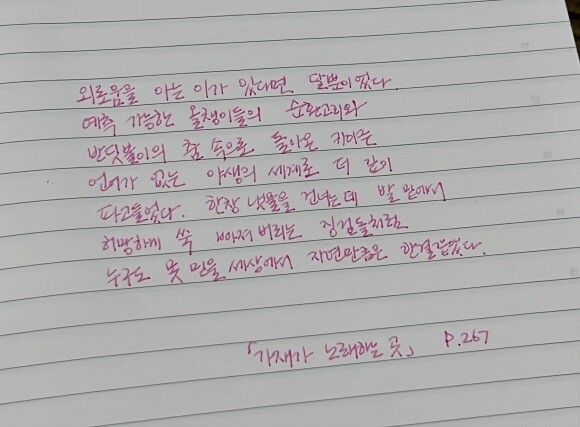 외로움을 아는 이가 있다면 달뿐이었다.
예측 가능한 올챙이들의 순환고리와
반딧불이의 춤 속으로 돌아온 카야는
언어가 없는 야생의 세계로 더 깊이
파고들었다. 한창 냇물을 건너는데 발 밑에서
허망하게 쑥 빠져버리는 징검돌처럼
누구도 못 믿을 세상에서 자연만큼은 한결같았다.
「가재가 노래하는 곳」 P.267